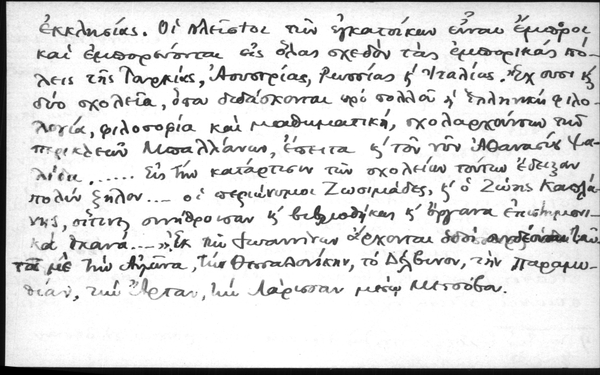 ἐκκλησίας. Οἱ πλεῖστοι τῶν ἐγκατοίκων εἶναι ἔμποροι
καὶ ἐμπορεύονται εἰς ὅλας σχεδὸν τὰς ἐμπορικὰς πό-
λεις τῆς Τουρκίας, Αουστρίας, Ρωσσίας κ' Ἰταλίας. Ἔχουσι κ'
δύο σχολεῖα, ὅπου διδάσκονται πρὸ πολλοῦ ἡ ἑλληνικὴ φιλο-
λογία, φιλοσοφία καὶ μαθηματική, σχολαρχούντων τοῦ
Μπαλλάνων, ἔπειτα κ' τὸν νῦν Ἀθανασίου Ψα-
λίδα...... Εἰς τὴν κατάρτισιν τῶν σχολείων τούτων ἔδειξαν
πολὺν ζῆλον.... οἱ περιώνυμοι Ζωσιμάδες, κ' ὁ Ζώης Καπλά-
νης, οἵτινες συνήθροισαν κ' βιβλιοθήκας κ' ὄργανα ἐπιστημονι-
κὰ ἱκανά....» Ἐκ τῶν Ἰωαννίνων ἄρχονται ὁδοὶ
μὲ τὴν Θεσσαλονίκην, τὸ Δέλβινον, τὴν Παραμυ-
θίαν, τὴν Ἄρταν, τὴν Λάρισσαν μέσῳ Μετσόβου.